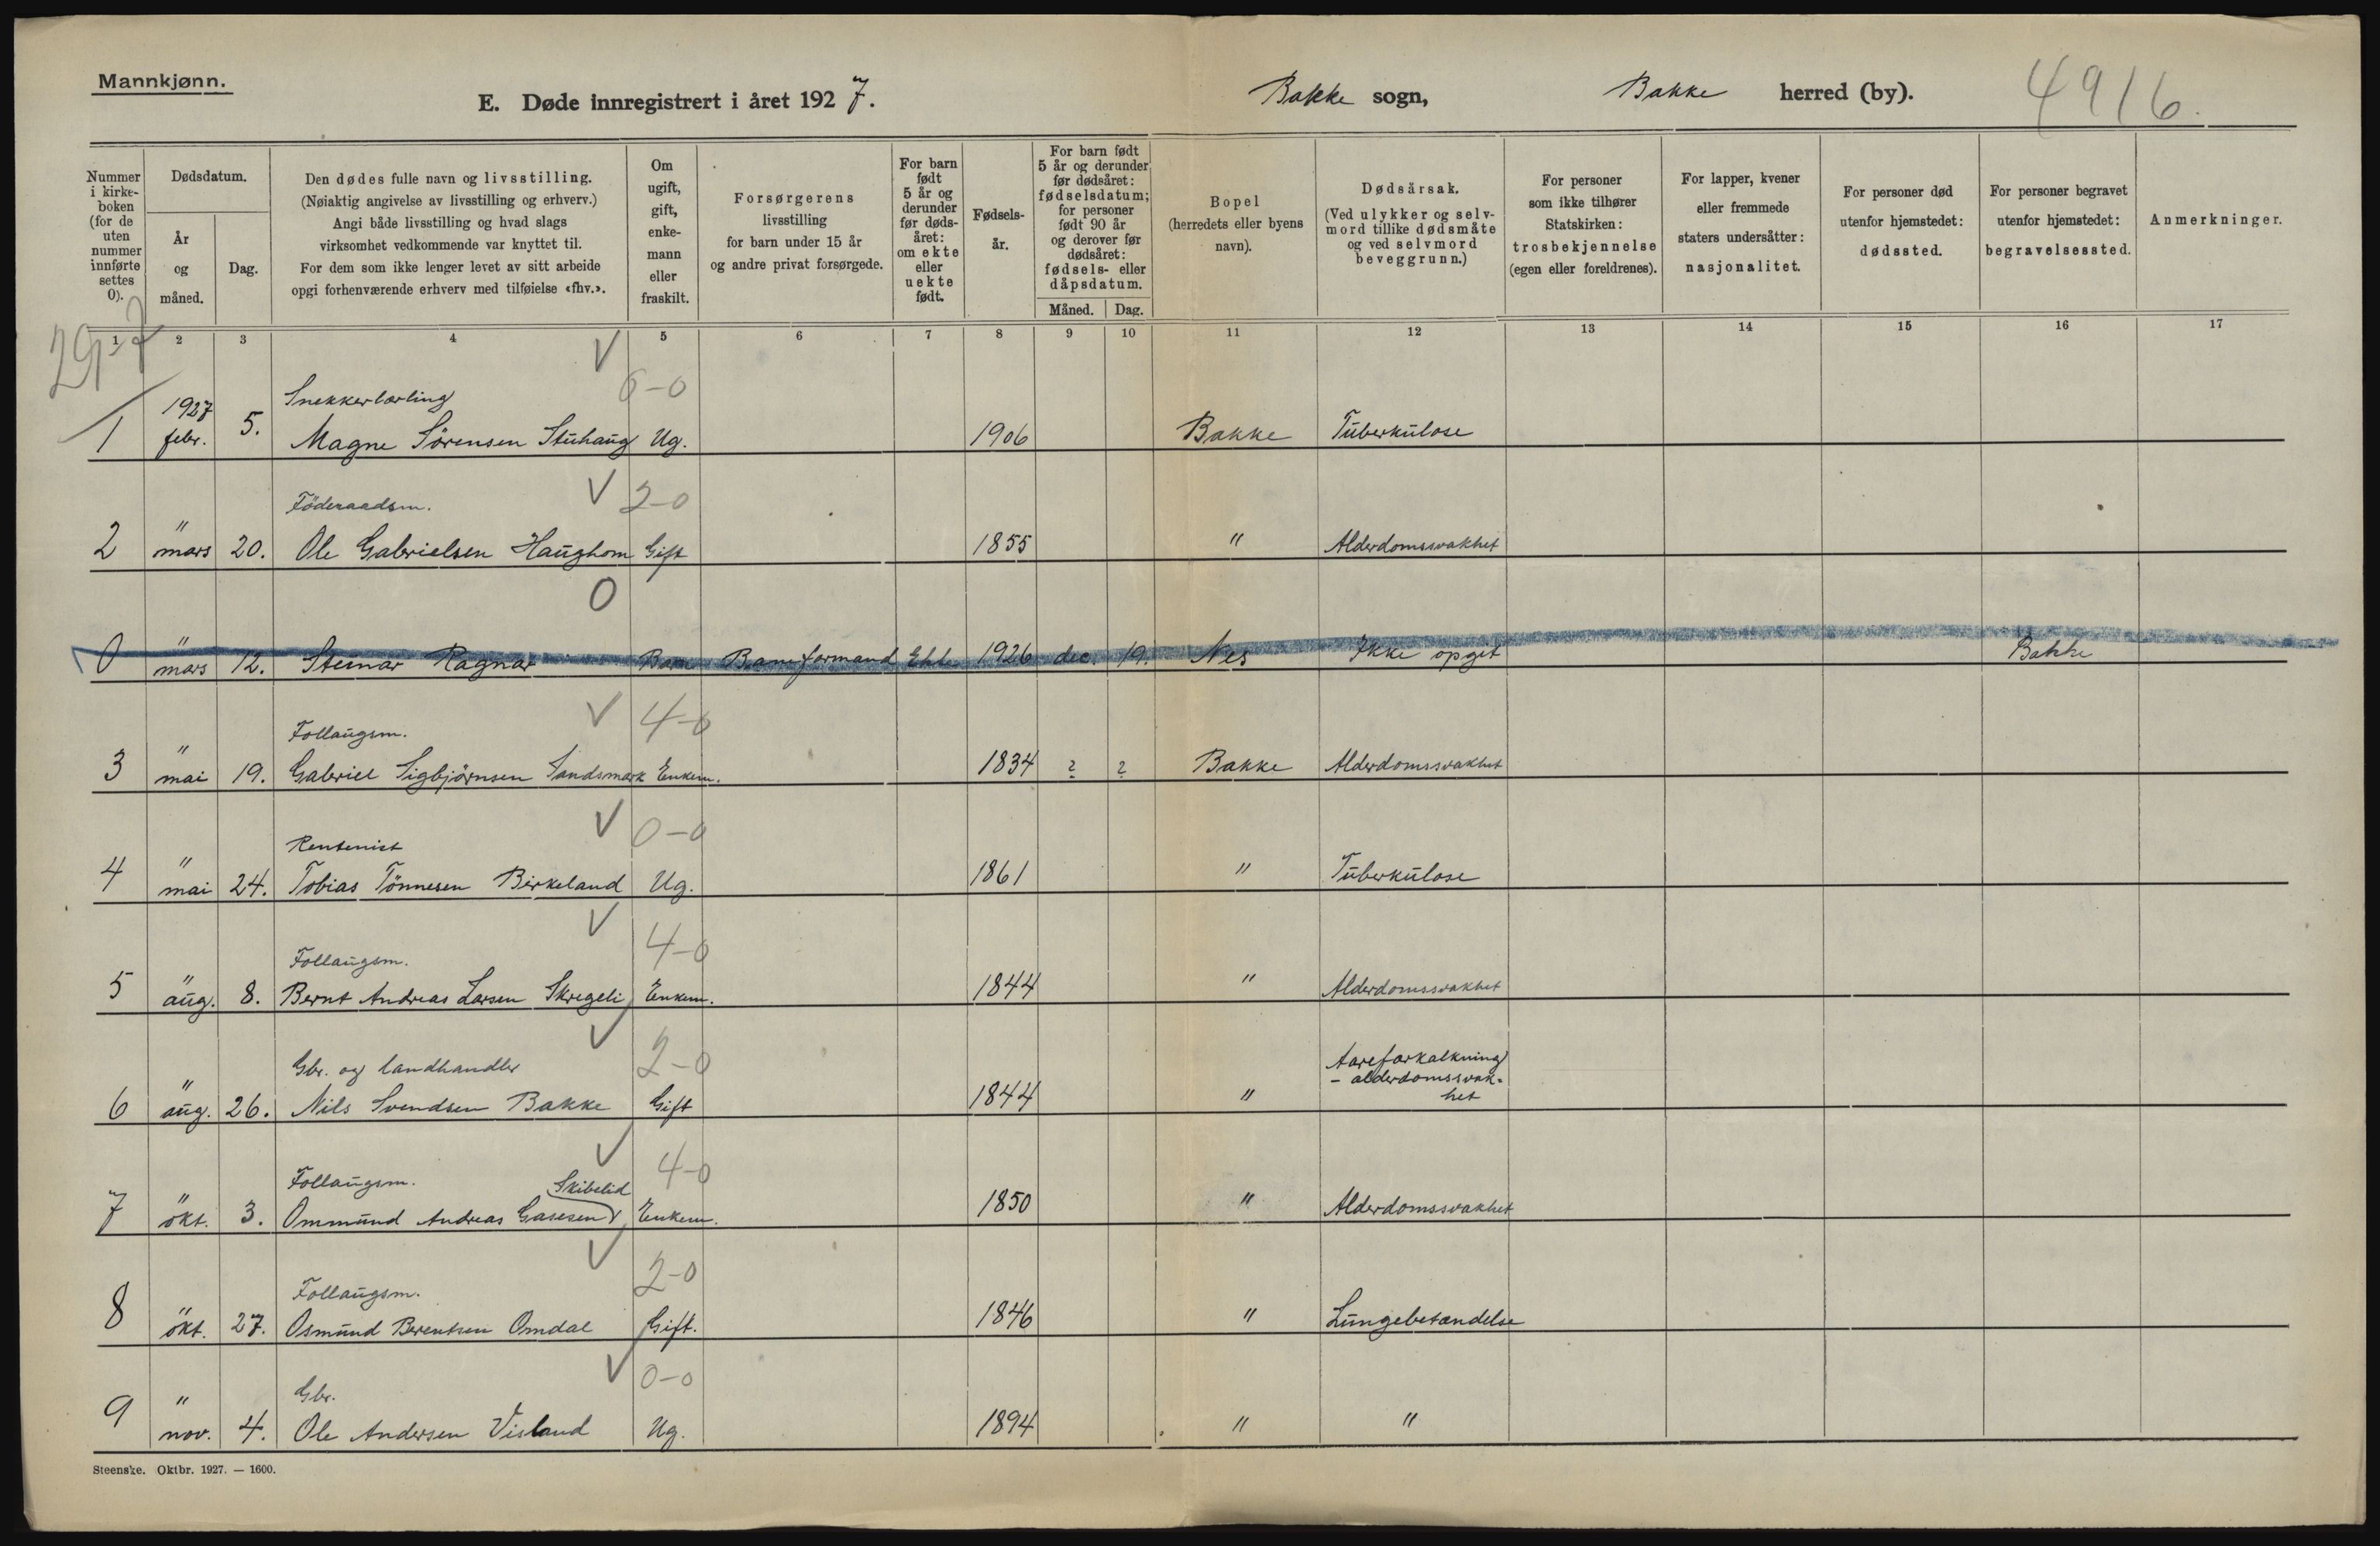 Mannkjønn.
E. Døde innregistrert i året 1927.
Bakke sogn, Bakke herred (by). 4916.
Nummer i kirkeboken (for de uten nummer innførte settes 0).
Dødsdatum.
År og måned.
Dag.
Den dødes fulle navn og livsstilling.
(Nøiaktig angivelse av livsstilling og erhverv.)
Angi både livsstilling og hvad slags
virksomhet vedkommende var knyttet til.
For dem som ikke lenger levet av sitt arbeide
opgi forhenværende erhverv med tilføielse «fhv.».
Om ugift, gift, enkemann eller fraskilt.
Forsørgerens
livsstilling
for barn under 15 år
og andre privat forsørgede.
For barn født 5 år og derunder før dødsåret: om ekte eller uekte født.
Fødselsår.
For barn født 5 år og derunder før dødsåret: fødselsdatum; for personer født 90 år og derover før dødsåret: fødsels- eller dåpsdatum.
Måned. Dag.
Bopel
(herredets eller byens navn).
Dødsårsak.
(Ved ulykker og selvmord tillike dødsmåte og ved selvmord beveggrunn.)
For personer som ikke tilhører Statskirken: trosbekjennelse (egen eller foreldrenes).
For lapper, kvener eller fremmede staters undersåtter: nasjonalitet.
For personer død utenfor hjemstedet: dødssted.
For personer begravet utenfor hjemstedet: begravelsessted.
Anmerkninger.
1 2 3 4 5 6 7 8 9 10 11 12 13 14 15 16 17
29-7
Snekkerlærling 6-0
1 1927 febr. 5. Magne Sørensen Stuhaug Ug. 1906 Bakke Tuberkulose
Föderaadsm. 2-0
2 " mars 20. Ole Gabrielsen Haughom Gift 1855 " Alderdomssvakhet
0
0 " mars 12. Steinar Ragnar Barn Baneformand Ekte 1926 dec. 19. Nes Ikke opgit Bakke
Follaugsm. 4-0
3 " mai 19. Gabriel Sigbjörnsen Sandsmark Enkem. 1834 ? ? Bakke Alderdomssvakhet
Rentenist 0-0
4 " mai 24. Tobias Tönnesen Birkeland Ug. 1861 " Tuberkulose
Follaugsm. 4-0
5 " aug. 8. Bernt Andreas Larsen Skregeli Enkem. 1844 " Alderdomssvakhet
Gbr. og landhandler 2-0
6 " aug. 26. Nils Svendsen Bakke Gift 1844 " Aareforkalkning
- alderdomssvak-
het
Follaugsm. Skibelid 4-0
7 " okt. 3. Ommund Andreas Gasesen Enkem. 1850 " Alderdomssvakhet
Follaugsm. 2-0
8 " okt. 27. Osmund Berentsen Omdal Gift. 1846 " Lungebetændelse
Gbr. 0-0
9 " nov. 4. Ole Andersen Visland Ug. 1894 " "
Steenske. Oktbr. 1927. — 1600.